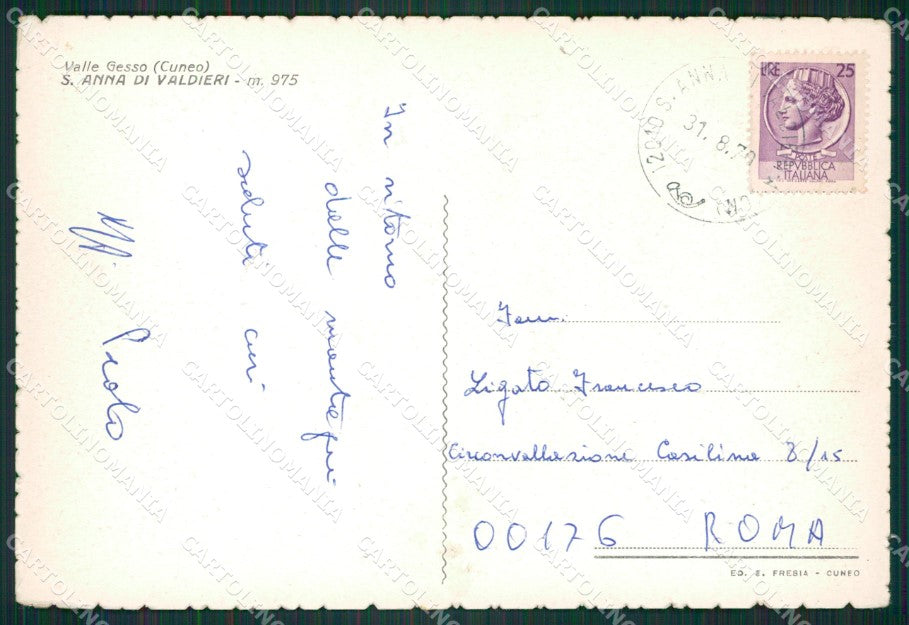 Valle Gesso (Cuneo)
S. ANNA DI VALDIERI - m. 975
In ritorno
delle montagne
saluti cari
Paolo
12010 S. ANNA
31. 8. 70
(CN)
LIRE 25
POSTE
REPVBBLICA
ITALIANA
Fam.
Ligato Francesco
Circonvallazione Casilina 8/15
00176 ROMA
ED. E. FRESIA - CUNEO
CARTOLINOMANIA